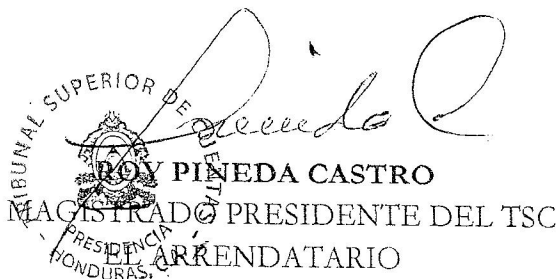 TRIBUNAL SUPERIOR DE CUENTAS
PRESIDENCIA
HONDURAS, C.A.
ROY PINEDA CASTRO
MAGISTRADO PRESIDENTE DEL TSC
EL ARRENDATARIO